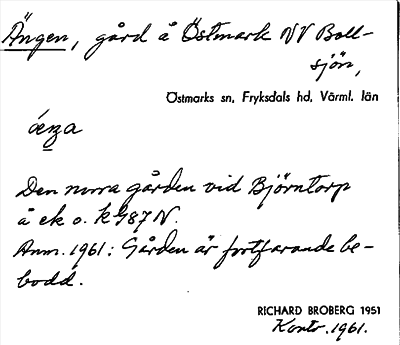 Ängen, gård å Östmark NV Boll-
sjön,
Östmarks sn, Fryksdals hd, Värml. län
Den norra gården vid Björntorp
å ek o. k 987 N.
Anm. 1961: Gården är fortfarande be-
bodd.
RICHARD BROBERG 1951
Kontr. 1961.